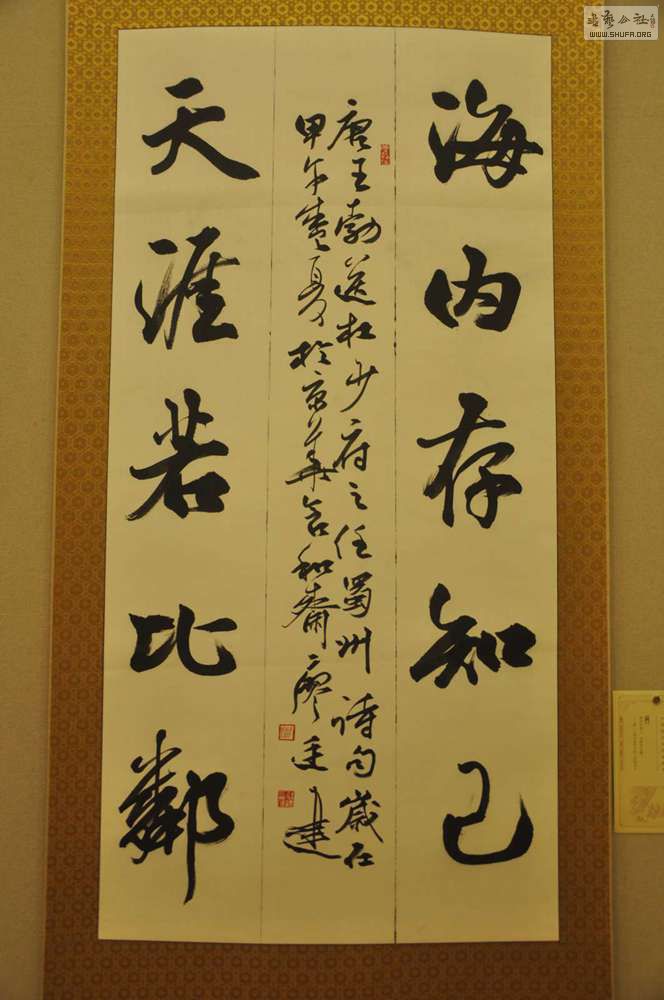 海内存知己
唐王勃送杜少府之任蜀州诗句岁在
甲午季夏於京华含和斋廖廷建
天涯若比鄰
书艺公社
WWW.SHUFA.ORG